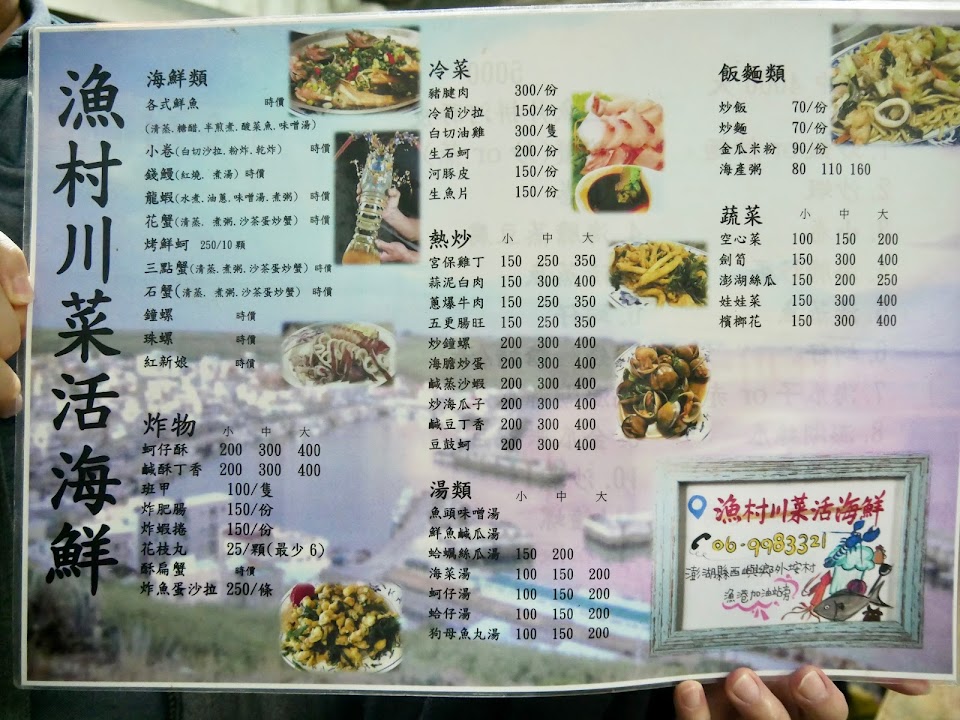 漁村川菜活海鮮
海鮮類
各式鮮魚 時價
(清蒸.糖醋.半煎煮.酸菜魚.味噌湯)
小卷(白切沙拉.粉炸.乾炸) 時價
錢鰻(紅燒. 煮湯)時價
龍蝦(水煮.油蔥.味噌湯.煮粥) 時價
花蟹(清蒸. 煮粥.沙茶蛋炒蟹) 時價
烤鮮蚵 250/10顆
三點蟹(清蒸.煮粥.沙茶蛋炒蟹)時價
石蟹(清蒸.煮粥.沙茶蛋炒蟹) 時價
鐘螺 時價
珠螺 時價
紅新娘 時價
炸物 小 中 大
蚵仔酥 200 300 400
鹹酥丁香 200 300 400
班甲 100/隻
炸肥腸 150/份
炸蝦捲 150/份
花枝丸 25/顆(最少6)
酥扁蟹 時價
炸魚蛋沙拉 250/條
冷菜
豬腱肉 300/份
冷筍沙拉 150/份
白切油雞 300/隻
生石蚵 200/份
河豚皮 150/份
生魚片 150/份
熱炒 小 中 大
宮保雞丁 150 250 350
蒜泥白肉 150 300 400
蔥爆牛肉 150 250 350
五更腸旺 150 250 350
炒鐘螺 200 300 400
海膽炒蛋 200 300 400
鹹蒸沙蝦 200 300 400
炒海瓜子 200 300 400
鹹豆丁香 200 300 400
豆鼓蚵 200 300 400
湯類 小 中 大
魚頭味噌湯
鮮魚鹹瓜湯
蛤蠣絲瓜湯 150 200
海菜湯 100 150 200
蚵仔湯 100 150 200
蛤仔湯 100 150 200
狗母魚丸湯 100 150 200
飯麵類
炒飯 70/份
炒麵 70/份
金瓜米粉 90/份
海產粥 80 110 160
蔬菜 小 中 大
空心菜 100 150 200
劍筍 150 300 400
澎湖絲瓜 150 200 250
娃娃菜 150 300 400
檳榔花 150 300 400
漁村川菜活海鮮
06-9983321
澎湖縣西嶼鄉外垵村
漁港加油站旁